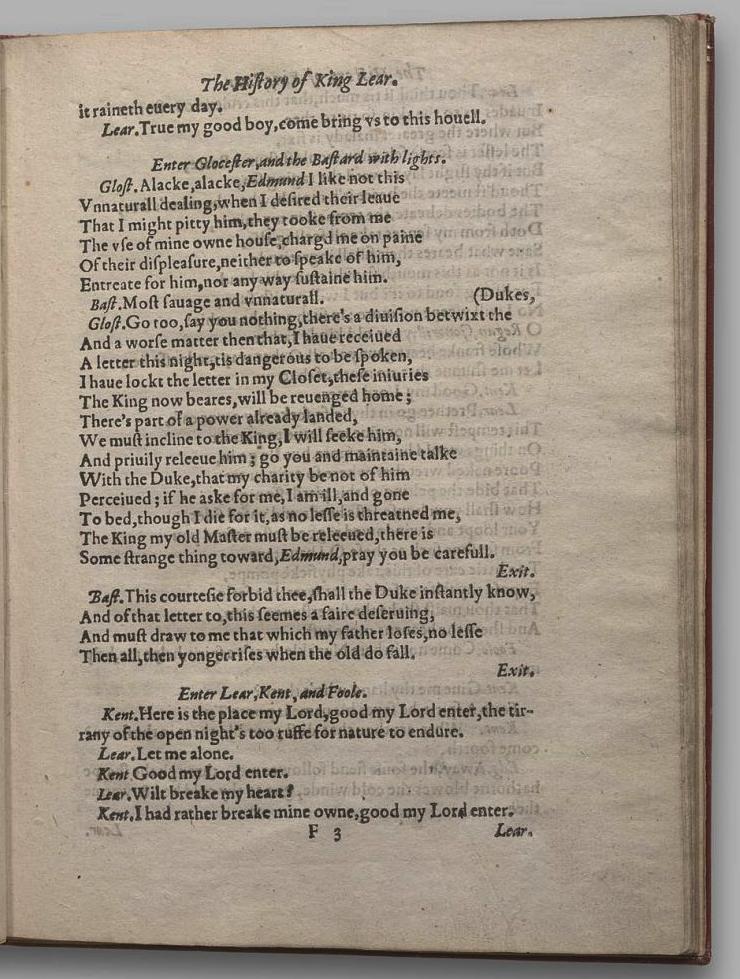 The Hiſtory of King Lear.
it raineth euery day.
Lear.True my good boy,come bring vs to this houell.
Enter Gloceſter,and the Baſtard with lights.
Gloſt. Alacke,alacke,Edmund I like not this
Vnnaturall dealing,when I deſired their leaue
That I might pitty him,they tooke from me
The vſe of mine owne houſe,chargd me on paine
Of their diſpleaſure,neither to ſpeake of him,
Entreate for him,nor any way ſuſtaine him.
Baſt.Moſt ſauage and vnnaturall. (Dukes,
Gloſt.Go too,ſay you nothing,there's a diuiſion betwixt the
And a worſe matter then that,I haue receiued
A letter this night,tis dangerous to be ſpoken,
I haue lockt the letter in my Cloſet,theſe iniuries
The King now beares,will be reuenged home;
There's part of a power already landed,
We muſt incline to the King,I will ſeeke him,
And priuily releeue him; go you and maintaine talke
With the Duke,that my charity be not of him
Perceiued; if he aske for me,I am ill,and gone
To bed,though I die for it,as no leſſe is threatned me,
The King my old Maſter muſt be releeued,there is
Some ſtrange thing toward,Edmund,pray you be carefull.
Exit.
Baſt.This courteſie forbid thee,ſhall the Duke inſtantly know,
And of that letter to,this ſeemes a faire deſeruing,
And muſt draw to me that which my father loſes,no leſſe
Then all,then yonger riſes when the old do fall.
Exit.
Enter Lear,Kent,and Foole.
Kent.Here is the place my Lord,good my Lord enter,the tir-
rany of the open night's too ruffe for nature to endure.
Lear.Let me alone.
Kent Good my Lord enter.
Lear.Wilt breake my heart?
Kent.I had rather breake mine owne,good my Lord enter.
F 3 Lear.